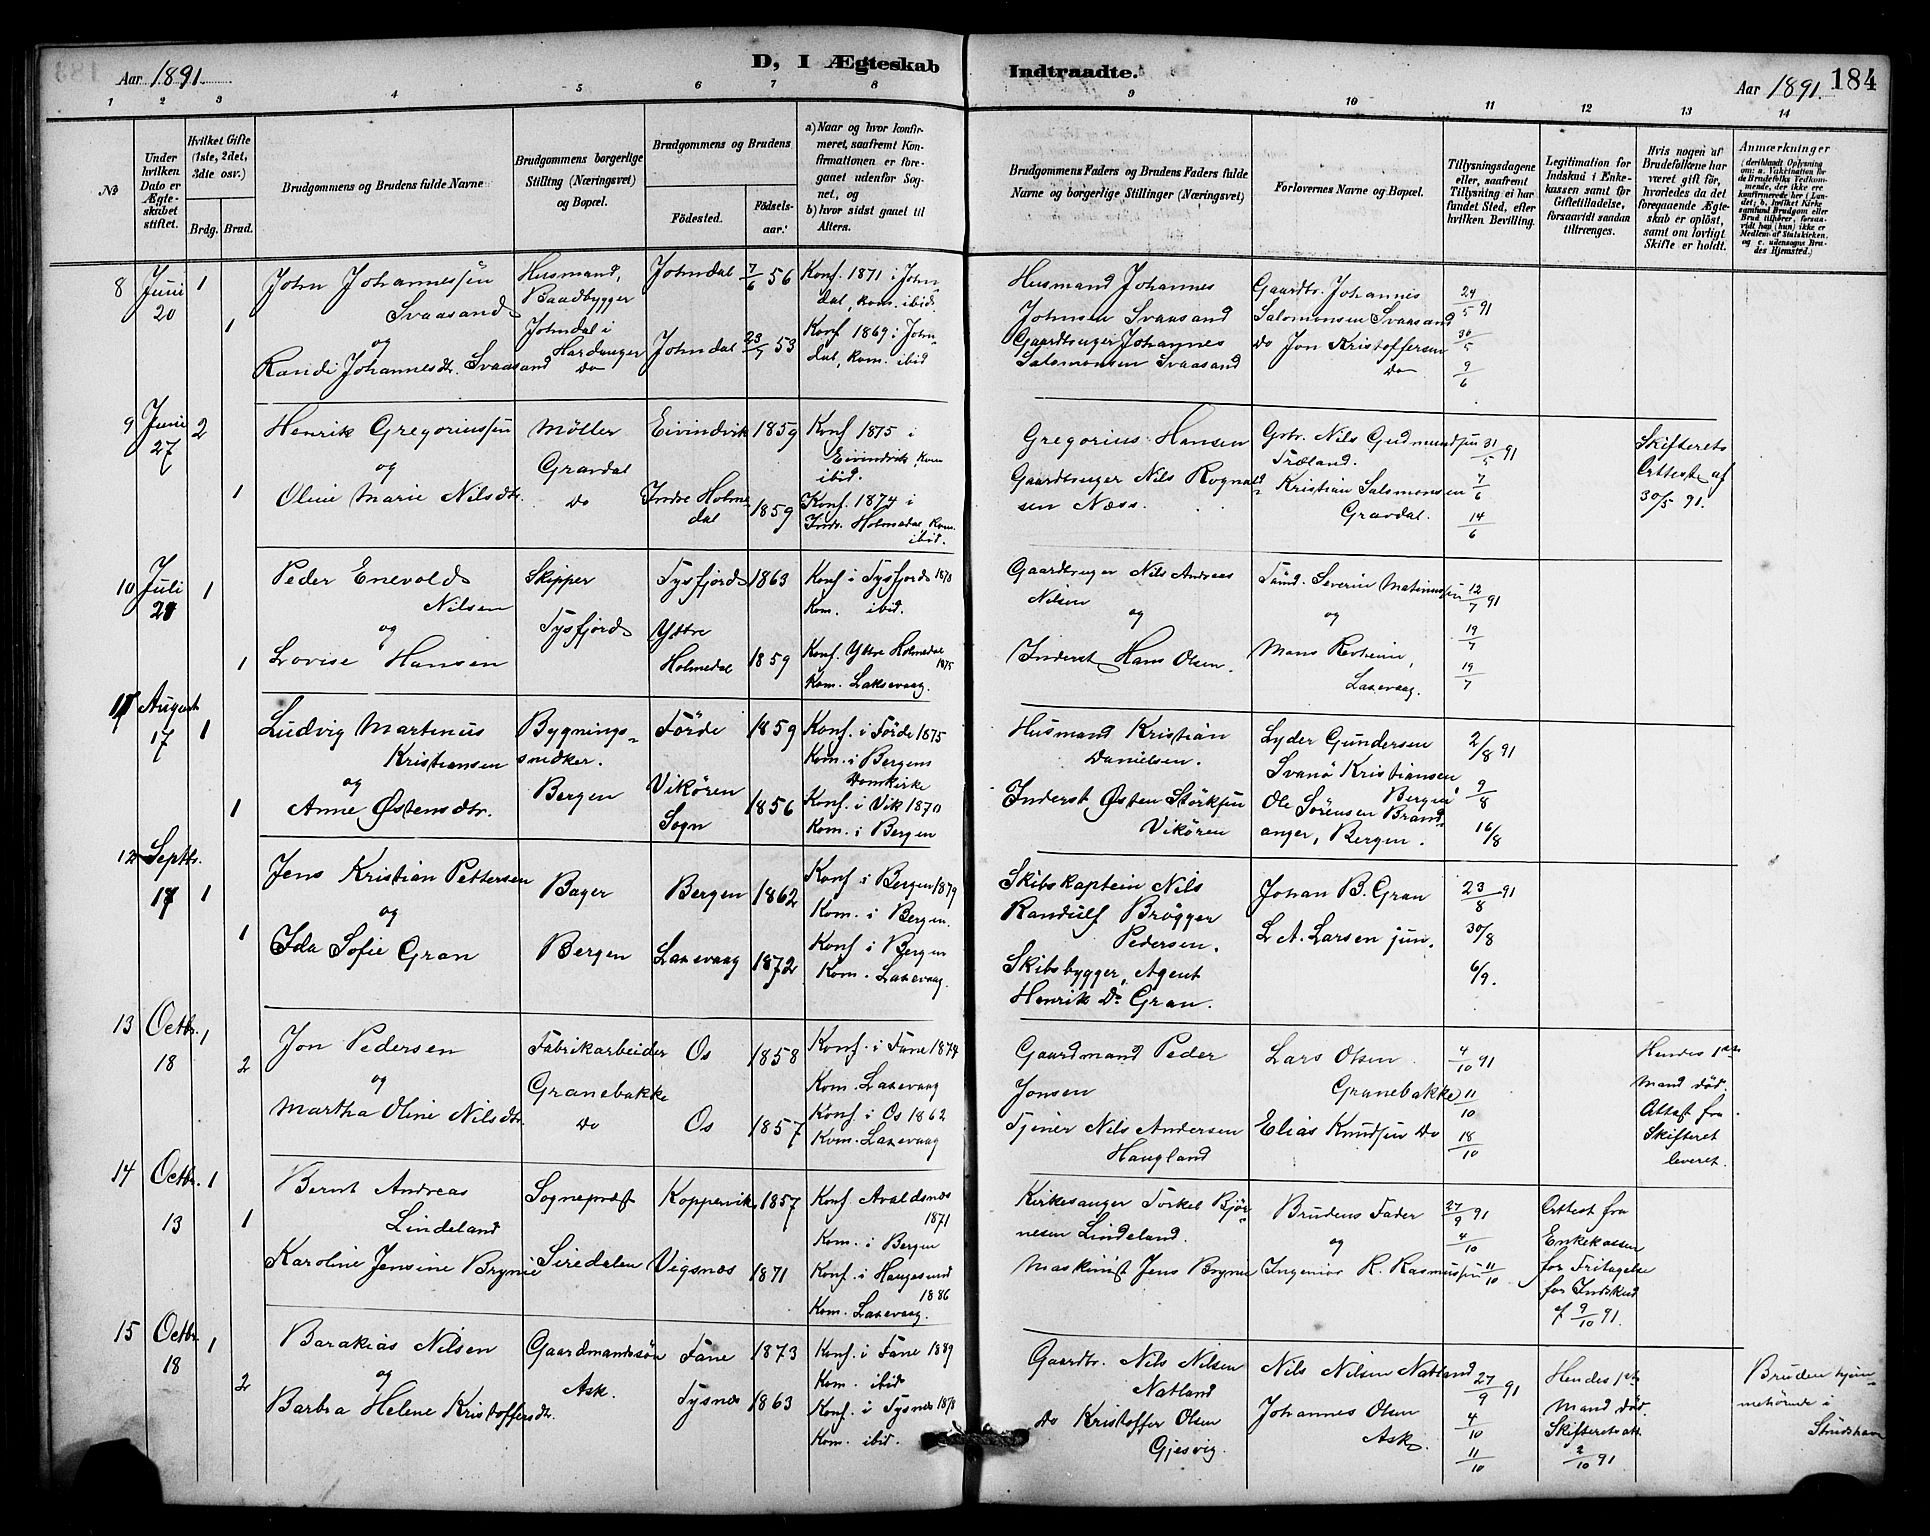 Aar 1891.
D, I Ægteskab Indtraadte.
Aar 1891.
184
1 2 3 4 5 6 7 8 9 10 11 12 13 14
No
Under hvilken Dato er Ægteskabet stiftet.
Hvilket Gifte (1ste, 2det, 3die osv.)
Brdg. Brud.
Brudgommens og Brudens fulde Navne
Brudgommens borgerlige Stilling (Næringsvei) og Bopæl.
Brudgommens og Brudens
Fødested.
Fødselsaar.
a) Naar og hvor konfirmeret, saafremt Konfirmationen er foregaaet udenfor Sognet, og
b) hvor sidst gaaet til Alters.
Brudgommens Faders og Brudens Faders fulde Navne og borgerlige Stillinger (Næringsvei)
Forlovernes Navne og Bopæl.
Tillysningsdagene eller, saafremt Tillysning ei har fundet Sted, efter hvilken Bevilling.
Legitimation for Indskud i Enkekassen samt for Giftetilladelse, forsaavidt saadan tiltrænges.
Hvis nogen af Brudefolkene har været gift før, hvorledes da det foregaaende Ægteskab er opløst, samt om lovligt Skifte er holdt.
Anmærkninger
(deriblandt Oplysning om: a. Vaccination for de Brudefolks Vedkommende, der ikke ere konfirmerede her i Landet; b. hvilket Kirkesamfund Brudgom eller Brud tilhører, forsaavidt han (hun) ikke er Medlem af Statskirken, og c. udensogns Brudes Hjemsted.)
8 Juni 20 1
John Johannessen Svaasand
Husmand, Baadbygger
Johndal i Hardanger
Johndal 7/6 56
Konf. 1871 i Johndal, kom. ibid.
Husmand Johannes Johnsen Svaasand
Gaardbr. Johannes Salomonsen Svaasand
24/5 91
og
1 Randi Johannesdtr. Svaasand
Do
Johndal 23/7 53
Konf 1869 i Johndal, kom. ibid
Gaardbruger Johannes Salomonsen Svaasand
Do Jon Kristoffersen Do
30/5
9/6
9 Juni 27 2
Henrik Gregoriussen
Møller
Gravdal
Eivindvik 1859
Konf 1875 i Eivindvik, kom ibid.
Gregorius Hansen
Gbr. Nils Gudmundsen Træland.
31/5 91
Skifterets Attest af 30/5 91.
og
1 Oline Marie Nilsdtr.
Do
Indre Holmedal 1859
Konf. 1874 i Indr. Holmedal, kom. ibid.
Gaardbruger Nils Rognaldsen Næss.
Kristian Salomonsen Gravdal.
7/6
14/6
10 Juli 21 1
Peder Enevold Nilsen
Skipper
Tysfjord
Tysfjord 1863
Konf i Tysfjord 1878
Kom. ibid.
Gaardbruger Nils Andreas Nilsen
og
Severin Matinussen
og
12/7 91
og
1 Lovise Hansen
Ydtre Holmedal 1859
Konf. Yttre Holmedal 1875
Kom. Laksevaag.
Inderst Hans Olsen.
Mons Revheim, Laxevaag.
19/7
19/7
11 August 17 1
Ludvig Martinus Kristiansen
Bygningssnedker.
Bergen
Førde 1859
Konf. i Førde 1875
Kom. i Bergens Domkirke
Husmand Kristian Danielsen.
Lyder Gundersen
Svanö Kristiansen Bergen
2/8 91
og
1 Anne Østensdtr.
Vikören Sogn 1856
Konf. i Vik 1870
Kom. i Bergen
Inderst, Østen Störksen Vikören
Ole Sørensen Brandanger, Bergen.
9/8
16/8
12 Septbr. 17 1
Jens Kristian Pettersen
Bager
Bergen 1862
Konf i Bergen 1879
Kom. i Bergen.
Skibskaptein Nils Randulf Brøgger Pedersen.
Johan B. Gran
23/8 91
og
1 Ida Sofie Gran
Bergen
Laxevaag 1872
Konf i Bergen
Kom. Laxevaag.
Skibsbygger, Agent Henrik D. Gran.
L. A. Larsen jun.
30/8
6/9.
13 Octbr. 18 1
Jon Pedersen
Fabrikarbeider
Granebakke
Os 1858
Konf. i Fane 1874
Kom. Laxevaag
Gaardmand Peder Jonsen
Lars Olsen Granebakke
4/10 91
Hendes 1ste Mand død. Attest fra Skifteret leveret.
og
2 Martha Oline Nilsdtr.
Do
Os 1857
Konf i Os 1862
Kom. Laxevaag
Tjener Nils Andersen Haugland
Elias Knudsen Do
11/10
18/10
14 Octbr. 13 1
Bernt Andreas Lindeland
Sognepræst
Koppervik 1857
Konf. Avaldsnæs 1871
Kom. i Bergen
Kirkesanger Torkel Bjørnesen Lindeland.
Brudens Fader
og
27/9 91
4/10
Attest fra Enkekassen for Fritagelse for Indskud af 9/10 91.
1 Karoline Jensine Bryne
Siredalen
Vigsnæs 1871
Konf. i Haugesund 1886
Kom. Laxevaag.
Maskinist Jens Bryne
Ingeniør R. Rasmussen
11/10
15 Octbr. 18 1
Barakias Nilsen
Gaardmandssøn
Ask.
Fane 1873
Konf. i Fane 1889
Kom. ibid
Gaardbr. Nils Nilsen Natland
Nils Nilsen Natland
27/9 91
Hendes 1ste Mand død. Skifteretsatt. 2/10 91
Bruden hjemmehørende i
og
2 Barbra Helene Kristoffersdtr.
Tysnæs 1863
Konf. i Tysnæs 1878
Kom. ibid.
Do Kristoffer Olsen Gjesvig
Johannes Olsen Ask.
4/10
11/10